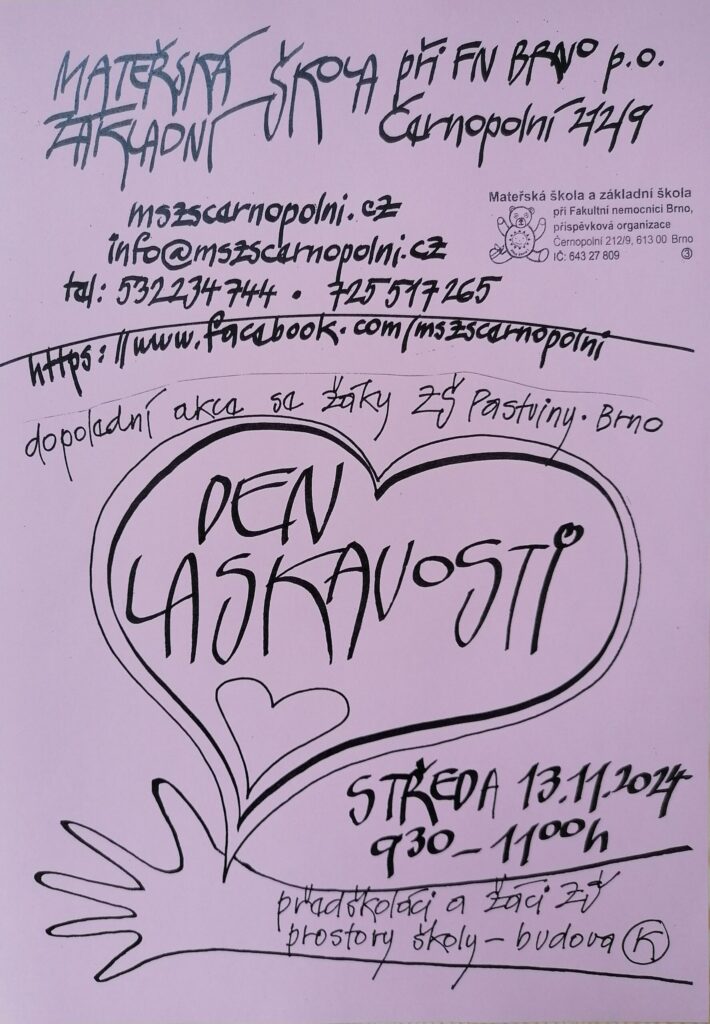 MATEŘSKÁ ŠKOLA při FN BRNO p.o.
ZÁKLADNÍ Černopolní 212/9
mszscernopolni.cz
info@mszscernopolni.cz
tel: 532234744 • 725517265
https://www.facebook.com/mszscernopolni
Mateřská škola a základní škola
při Fakultní nemocnici Brno,
příspěvková organizace
Černopolní 212/9, 613 00 Brno
IČ: 643 27 809 3
dopolední akce se žáky ZŠ Pastviny. Brno
DEN
LASKAVOSTI
STŘEDA 13.11.2024
9³⁰ – 11⁰⁰h
předškoláci a žáci ZŠ
prostory školy – budova K